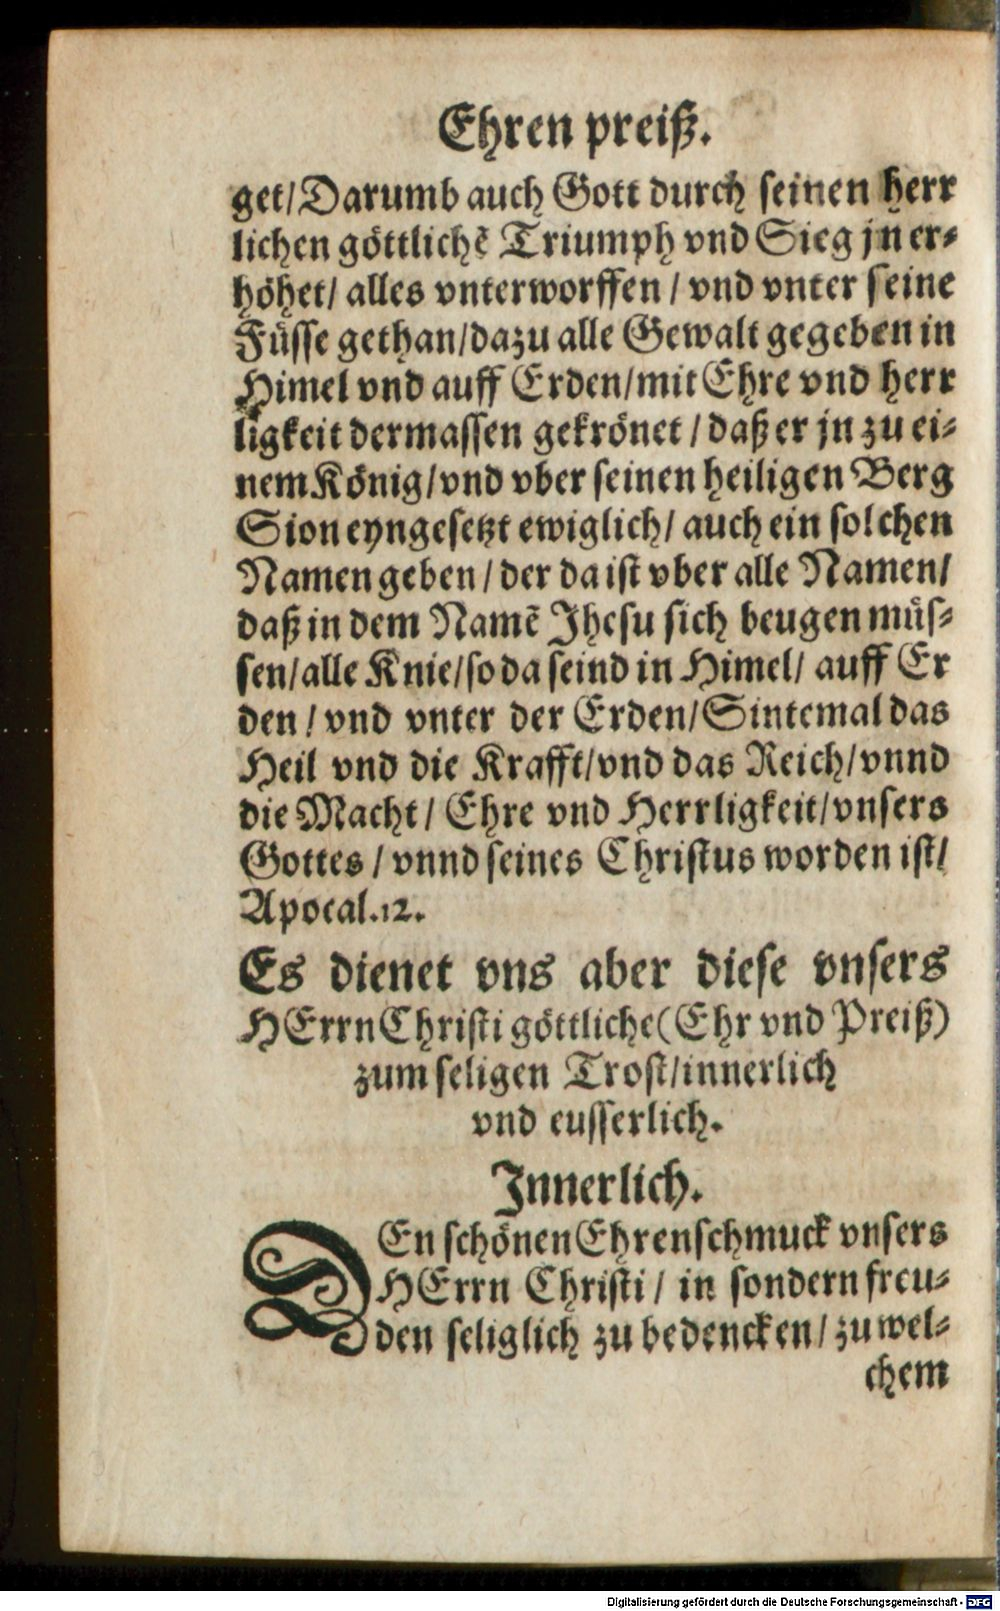 Ehren preiß.
get/Darumb auch Gott durch seinen herr
lichen göttlichẽ Triumph vnd Sieg jn er-
höhet/ alles vnterworffen / vnd vnter seine
Füsse gethan/dazu alle Gewalt gegeben in
Himel vnd auff Erden/mit Ehre vnd herr
ligkeit dermassen gekrönet / daß er jn zu ei-
nem König/vnd vber seinen heiligen Berg
Sion eyngesetzt ewiglich/ auch ein solchen
Namen geben / der da ist vber alle Namen/
daß in dem Namẽ Jhesu sich beugen müs-
sen/alle Knie/so da seind in Himel/ auff Er
den / vnd vnter der Erden/Sintemal das
Heil vnd die Krafft/vnd das Reich/vnnd
die Macht/ Ehre vnd Herrligkeit/vnsers
Gottes / vnnd seines Christus worden ist/
Apocal.12.
Es dienet vns aber diese vnsers
HErrn Christi göttliche(Ehr vnd Preiß)
zum seligen Trost/innerlich
vnd eusserlich.
Innerlich.
DEn schönen Ehrenschmuck vnsers
HErrn Christi / in sondern freu-
den seliglich zu bedencken / zu wel-
chem
Digitalisierung gefördert durch die Deutsche Forschungsgemeinschaft - DFG